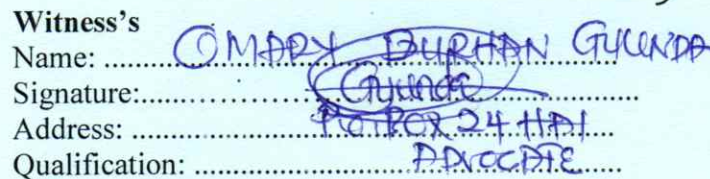 Witness's
Name: OMARY BURHAN GYUNDA
Signature: Gyunda
Address: P.O. BOX 24 HAI
Qualification: ADVOCATE